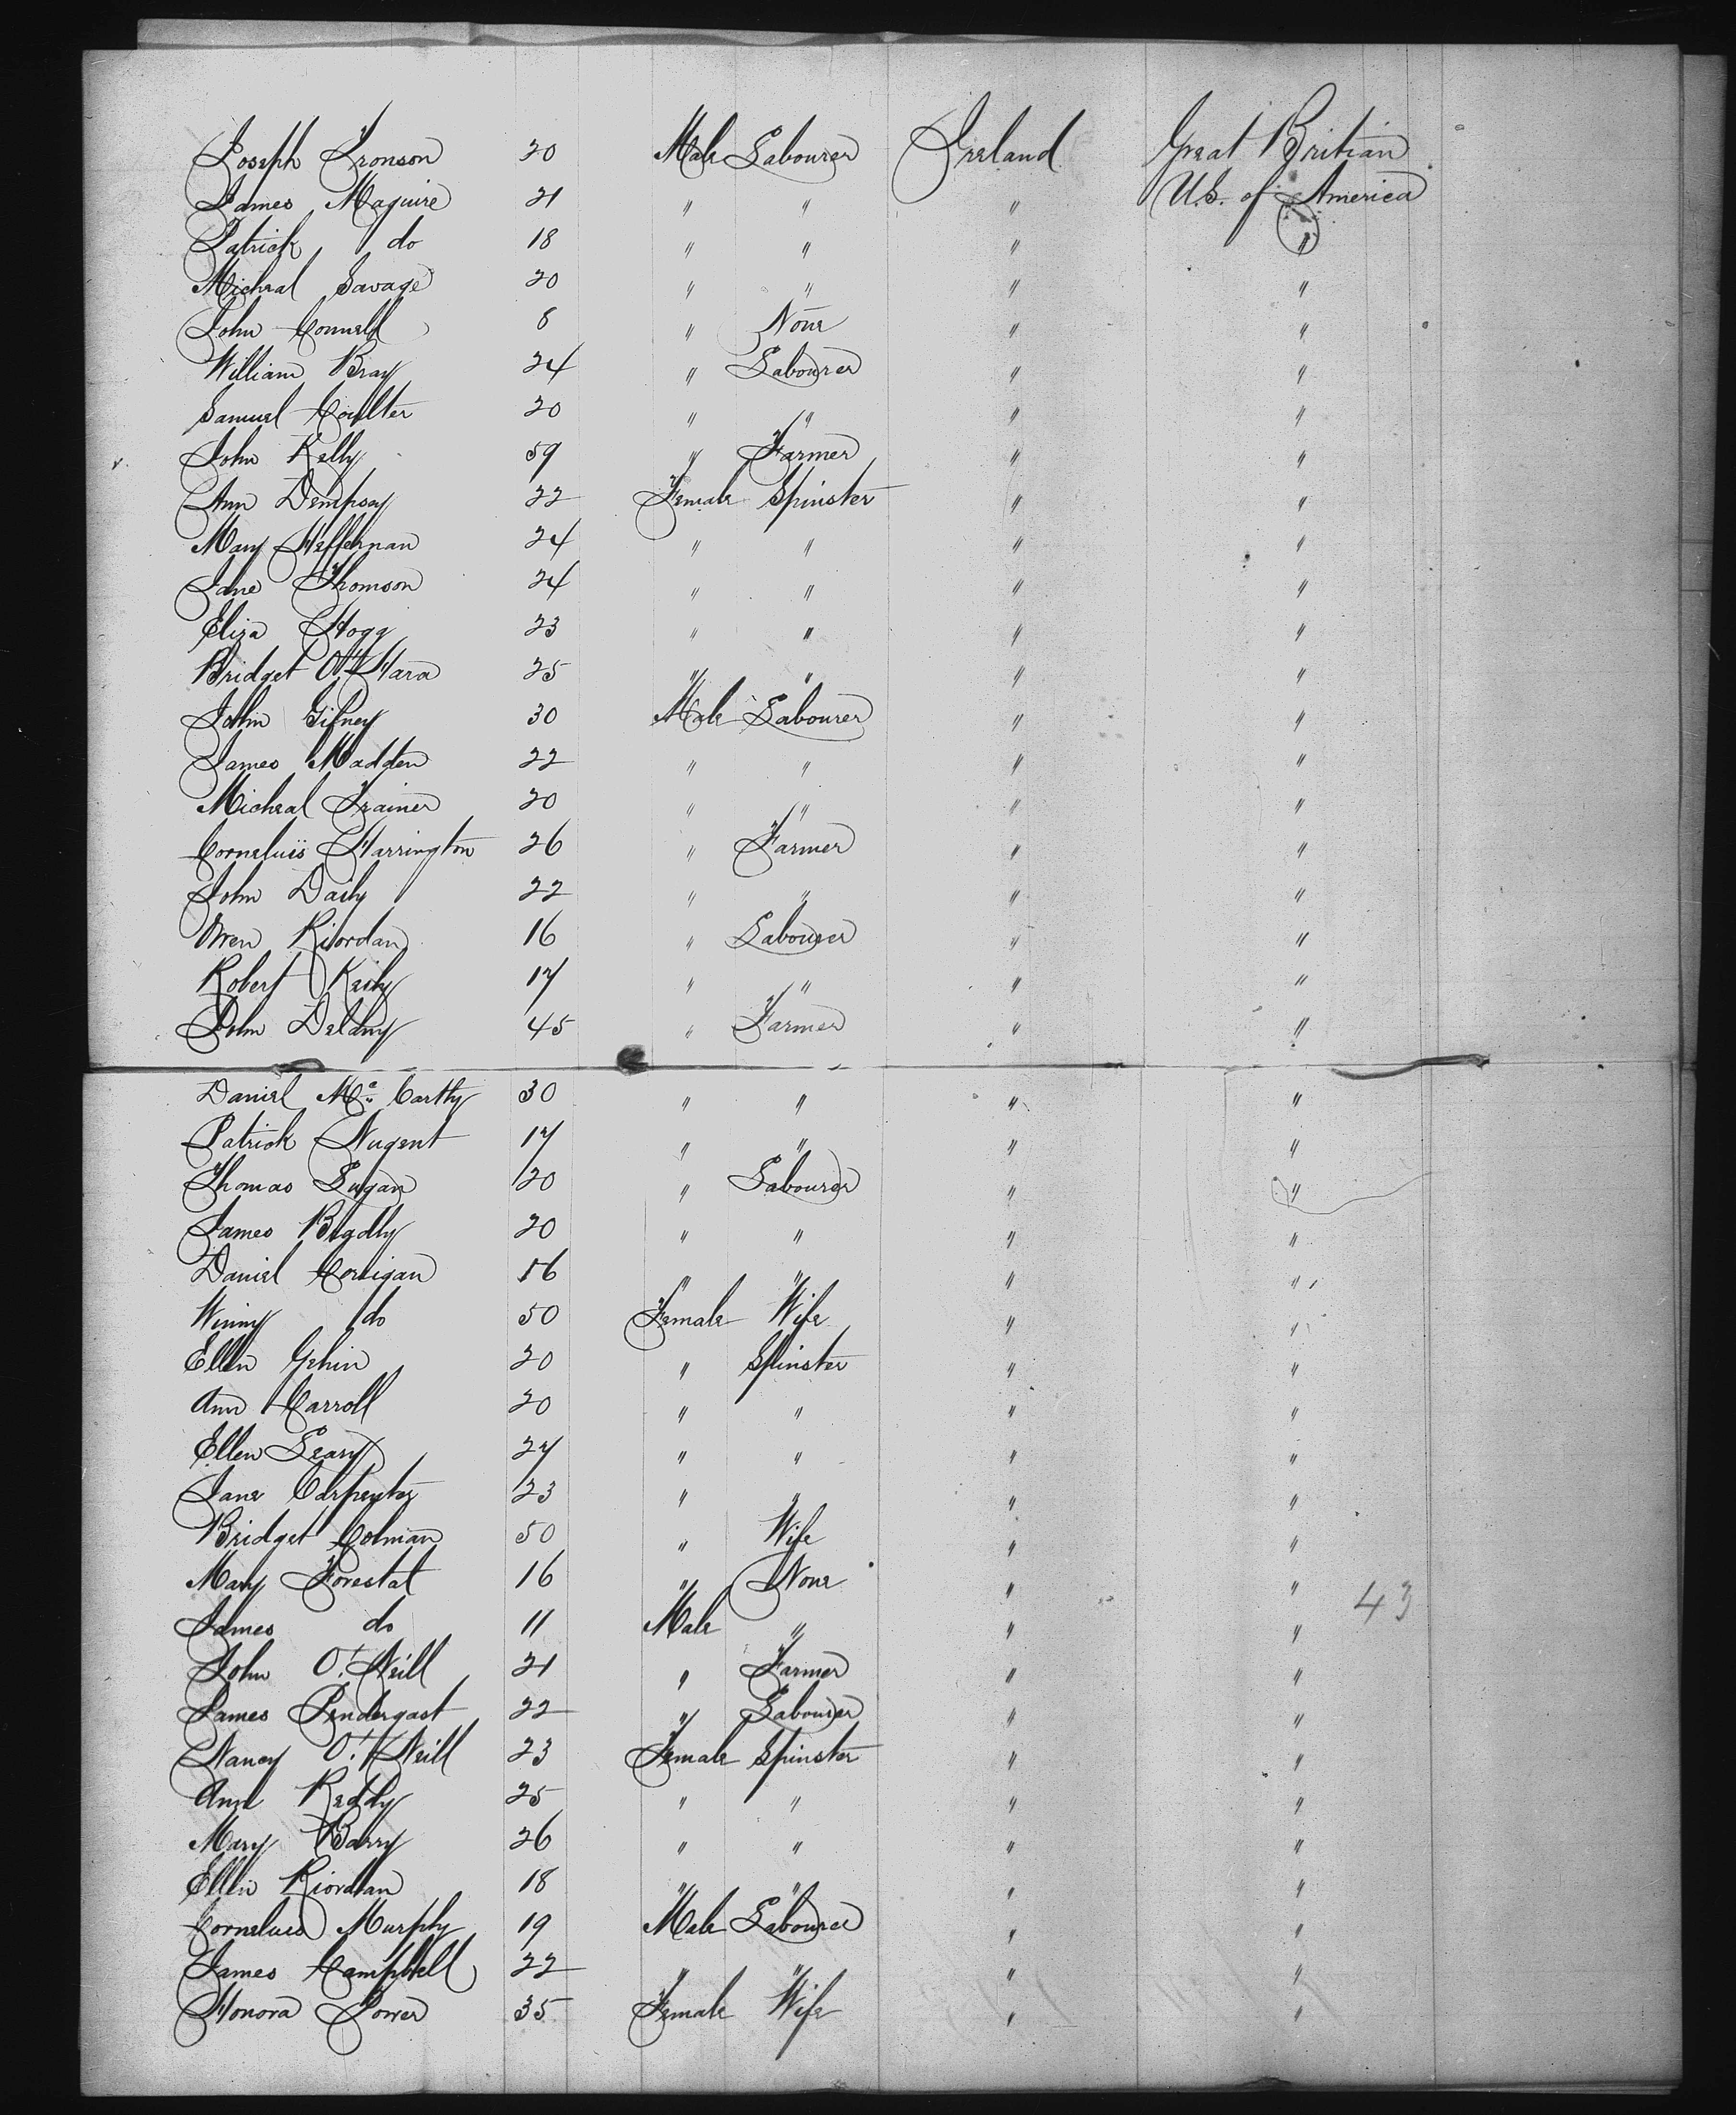 Joseph Fronson 20 Male Labourer Ireland Great Britian
James Maguire 21 " " " U.S. of America
Patrick do 18 " " " "
Michael Savage 20 " " " "
John Connell 8 " None " "
William Bray 24 " Labourer " "
Samuel Coulter 20 " " " "
John Kelly 59 " Farmer " "
Ann Dempsey 22 Female Spinster " "
Mary Heffernan 24 " " " "
Jane Thomson 24 " " " "
Eliza Hogg 23 " " " "
Bridget O'Hara 25 " " " "
John Gifney 30 Male Labourer " "
James Madden 22 " " " "
Michael Trainer 20 " " " "
Corneluis Harrington 26 " Farmer " "
John Daily 22 " " " "
Owen Riordan 16 " Labourer " "
Robert Keily 17 " " " "
John Delany 45 " Farmer " "
Daniel Mc Carthy 30 " " " "
Patrick Nugent 17 " " " "
Thomas Dugan 20 " Labourer " "
James 20 " " " "
Daniel Corrigan 16 " " " "
Winny do 50 Female Wife " "
Ellen Gehin 20 " Spinster " "
Ann Carroll 20 " " " "
Ellen Leary 27 " " " "
Jane Carpenter 23 " " " "
Bridget Colman 50 " Wife " "
Mary Forestal 16 " None " "
43
James do 11 Male " " "
John O'Neill 21 " Farmer " "
James Pendergast 22 " Labourer " "
Nancy O'Neill 23 Female Spinster " "
Ann Reddy 25 " " " "
Mary Barry 26 " " " "
Ellen Riordan 18 " " " "
Corneluis Murphy 19 Male Labourer " "
James Campbell 22 " " " "
Honora Power 35 Female Wife " "